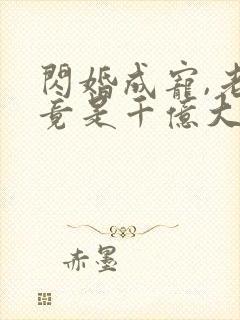 閃婚成寵,老
竟是千億大
赤墨